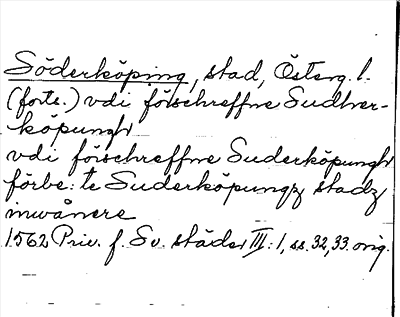 Söderköping, stad, Österg. l.
(forts.) vdi förschreffne Sudher-
köpungh
vdi förschreffne Suderköpungh
förbe: te Suderköpungz stadz
inwånere
1562 Priv. f. Sv. städer III: 1, ss. 32, 33. orig.